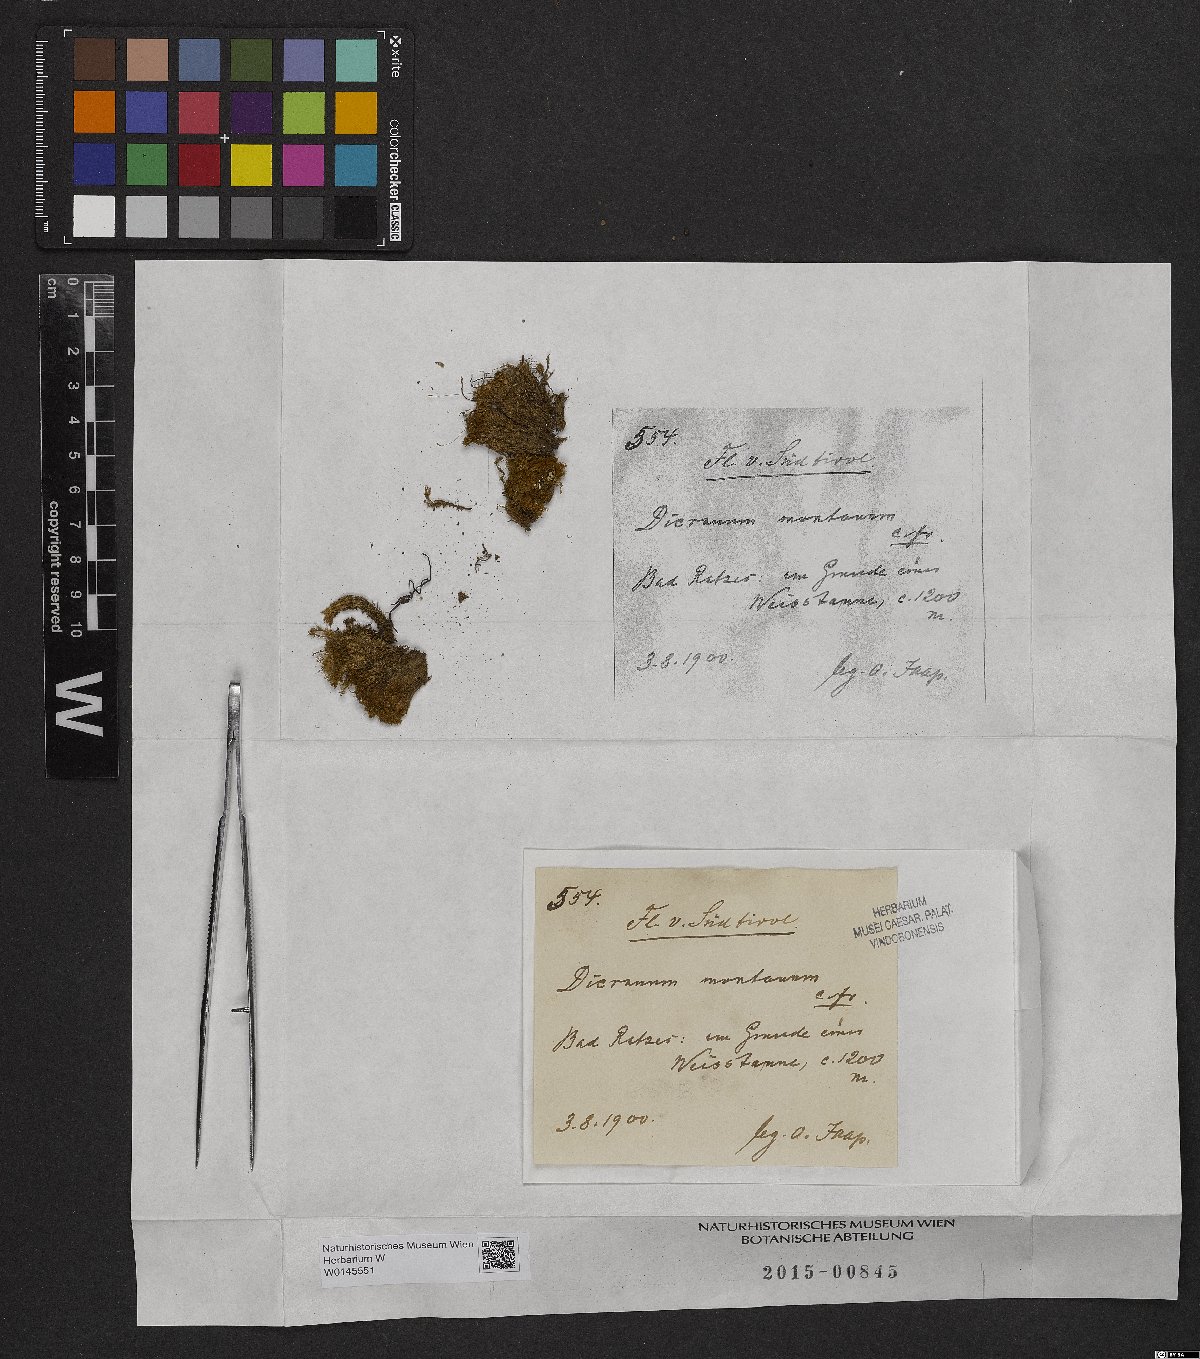 x-rite
colorchecker CLASSIC
mm
cm
0
1
2
3
4
5
6
7
8
9
10
copyright reserved
W
554.
Fl. v. Südtirol
Dicranum montanum
c. fr.
Bad Ratzes: am Grunde einer
Weisstanne, c. 1200
m.
3.8.1900.
leg. O. Jaap.
554.
Fl. v. Südtirol
Dicranum montanum
c. fr.
Bad Ratzes: am Grunde einer
Weisstanne, c. 1200
m.
3.8.1900.
leg. O. Jaap.
HERBARIUM
MUSEI CAESAR. PALAT.
VINDOBONENSIS
NATURHISTORISCHES MUSEUM WIEN
BOTANISCHE ABTEILUNG
2015-00845
Naturhistorisches Museum Wien
Herbarium W
W0145551
BY SA